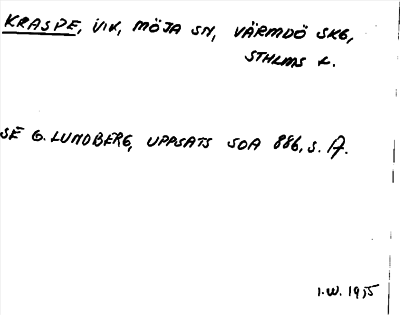 KRASPE, VIK, MÖJA SN, VÄRMDÖ SKG,
STHLMS L.
SE G. LUNDBERG, UPPSATS SOA 886, S. 17.
I.W. 1955